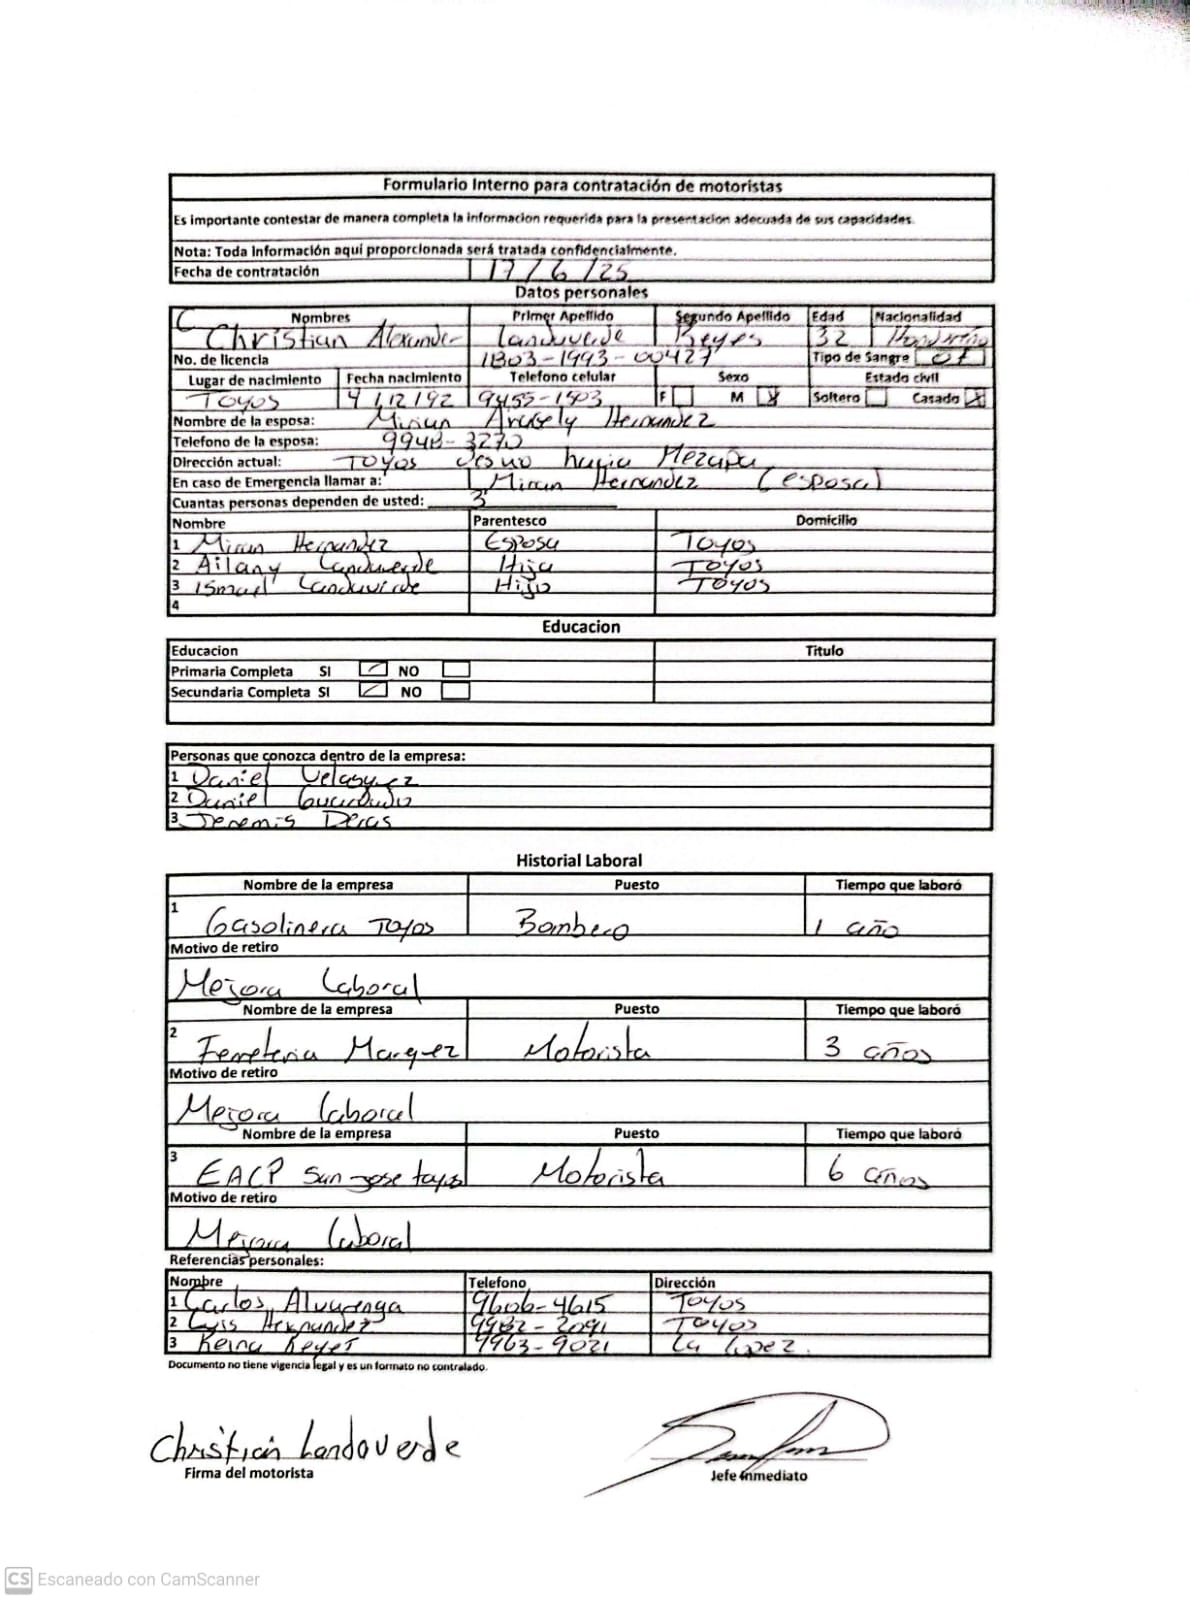 Formulario Interno para contratación de motoristas
Es importante contestar de manera completa la informacion requerida para la presentacion adecuada de sus capacidades.
Nota: Toda Información aquí proporcionada será tratada confidencialmente.
Fecha de contratación 17/6/25
Datos personales
Nombres Primer Apellido Segundo Apellido Edad Nacionalidad
Christian Alexander Landaverde Reyes 32 Hondureño
No. de licencia 1803-1993-00427 Tipo de Sangre O+
Lugar de nacimiento Fecha nacimiento Telefono celular Sexo Estado civil
Toyos 4/12/92 9455-1503 F M X Soltero Casado X
Nombre de la esposa: Mirian Aracely Hernandez
Telefono de la esposa: 9948-3270
Dirección actual: Toyos desvio hacia Mezapa
En caso de Emergencia llamar a: Miriam Hernandez (esposa)
Cuantas personas dependen de usted: 3
Nombre Parentesco Domicilio
1 Miriam Hernandez Esposa Toyos
2 Ailany Landaverde Hija Toyos
3 Ismael Landaverde Hijo Toyos
4
Educacion
Educacion Titulo
Primaria Completa SI ✓ NO
Secundaria Completa SI ✓ NO
Personas que conozca dentro de la empresa:
1 Daniel Velasquez
2 Daniel Guardado
3 Jeremis Deras
Historial Laboral
Nombre de la empresa Puesto Tiempo que laboró
1 Gasolinera Toyos Bombero 1 año
Motivo de retiro
Mejora Laboral
Nombre de la empresa Puesto Tiempo que laboró
2 Ferreteria Marquez Motorista 3 años
Motivo de retiro
Mejora Laboral
Nombre de la empresa Puesto Tiempo que laboró
3 EACP San jose toyos Motorista 6 años
Motivo de retiro
Mejora Laboral
Referencias personales:
Nombre Telefono Dirección
1 Carlos Alvarenga 9606-4615 Toyos
2 Luis Hernandez 9982-2091 Toyos
3 Reina Reyes 9963-9021 La Lopez.
Documento no tiene vigencia legal y es un formato no contralado.
Christian Landaverde
Firma del motorista Jefe inmediato
CS Escaneado con CamScanner